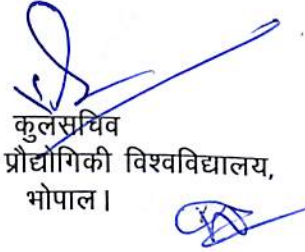 कुलसचिव
प्रौद्योगिकी विश्वविद्यालय,
भोपाल।